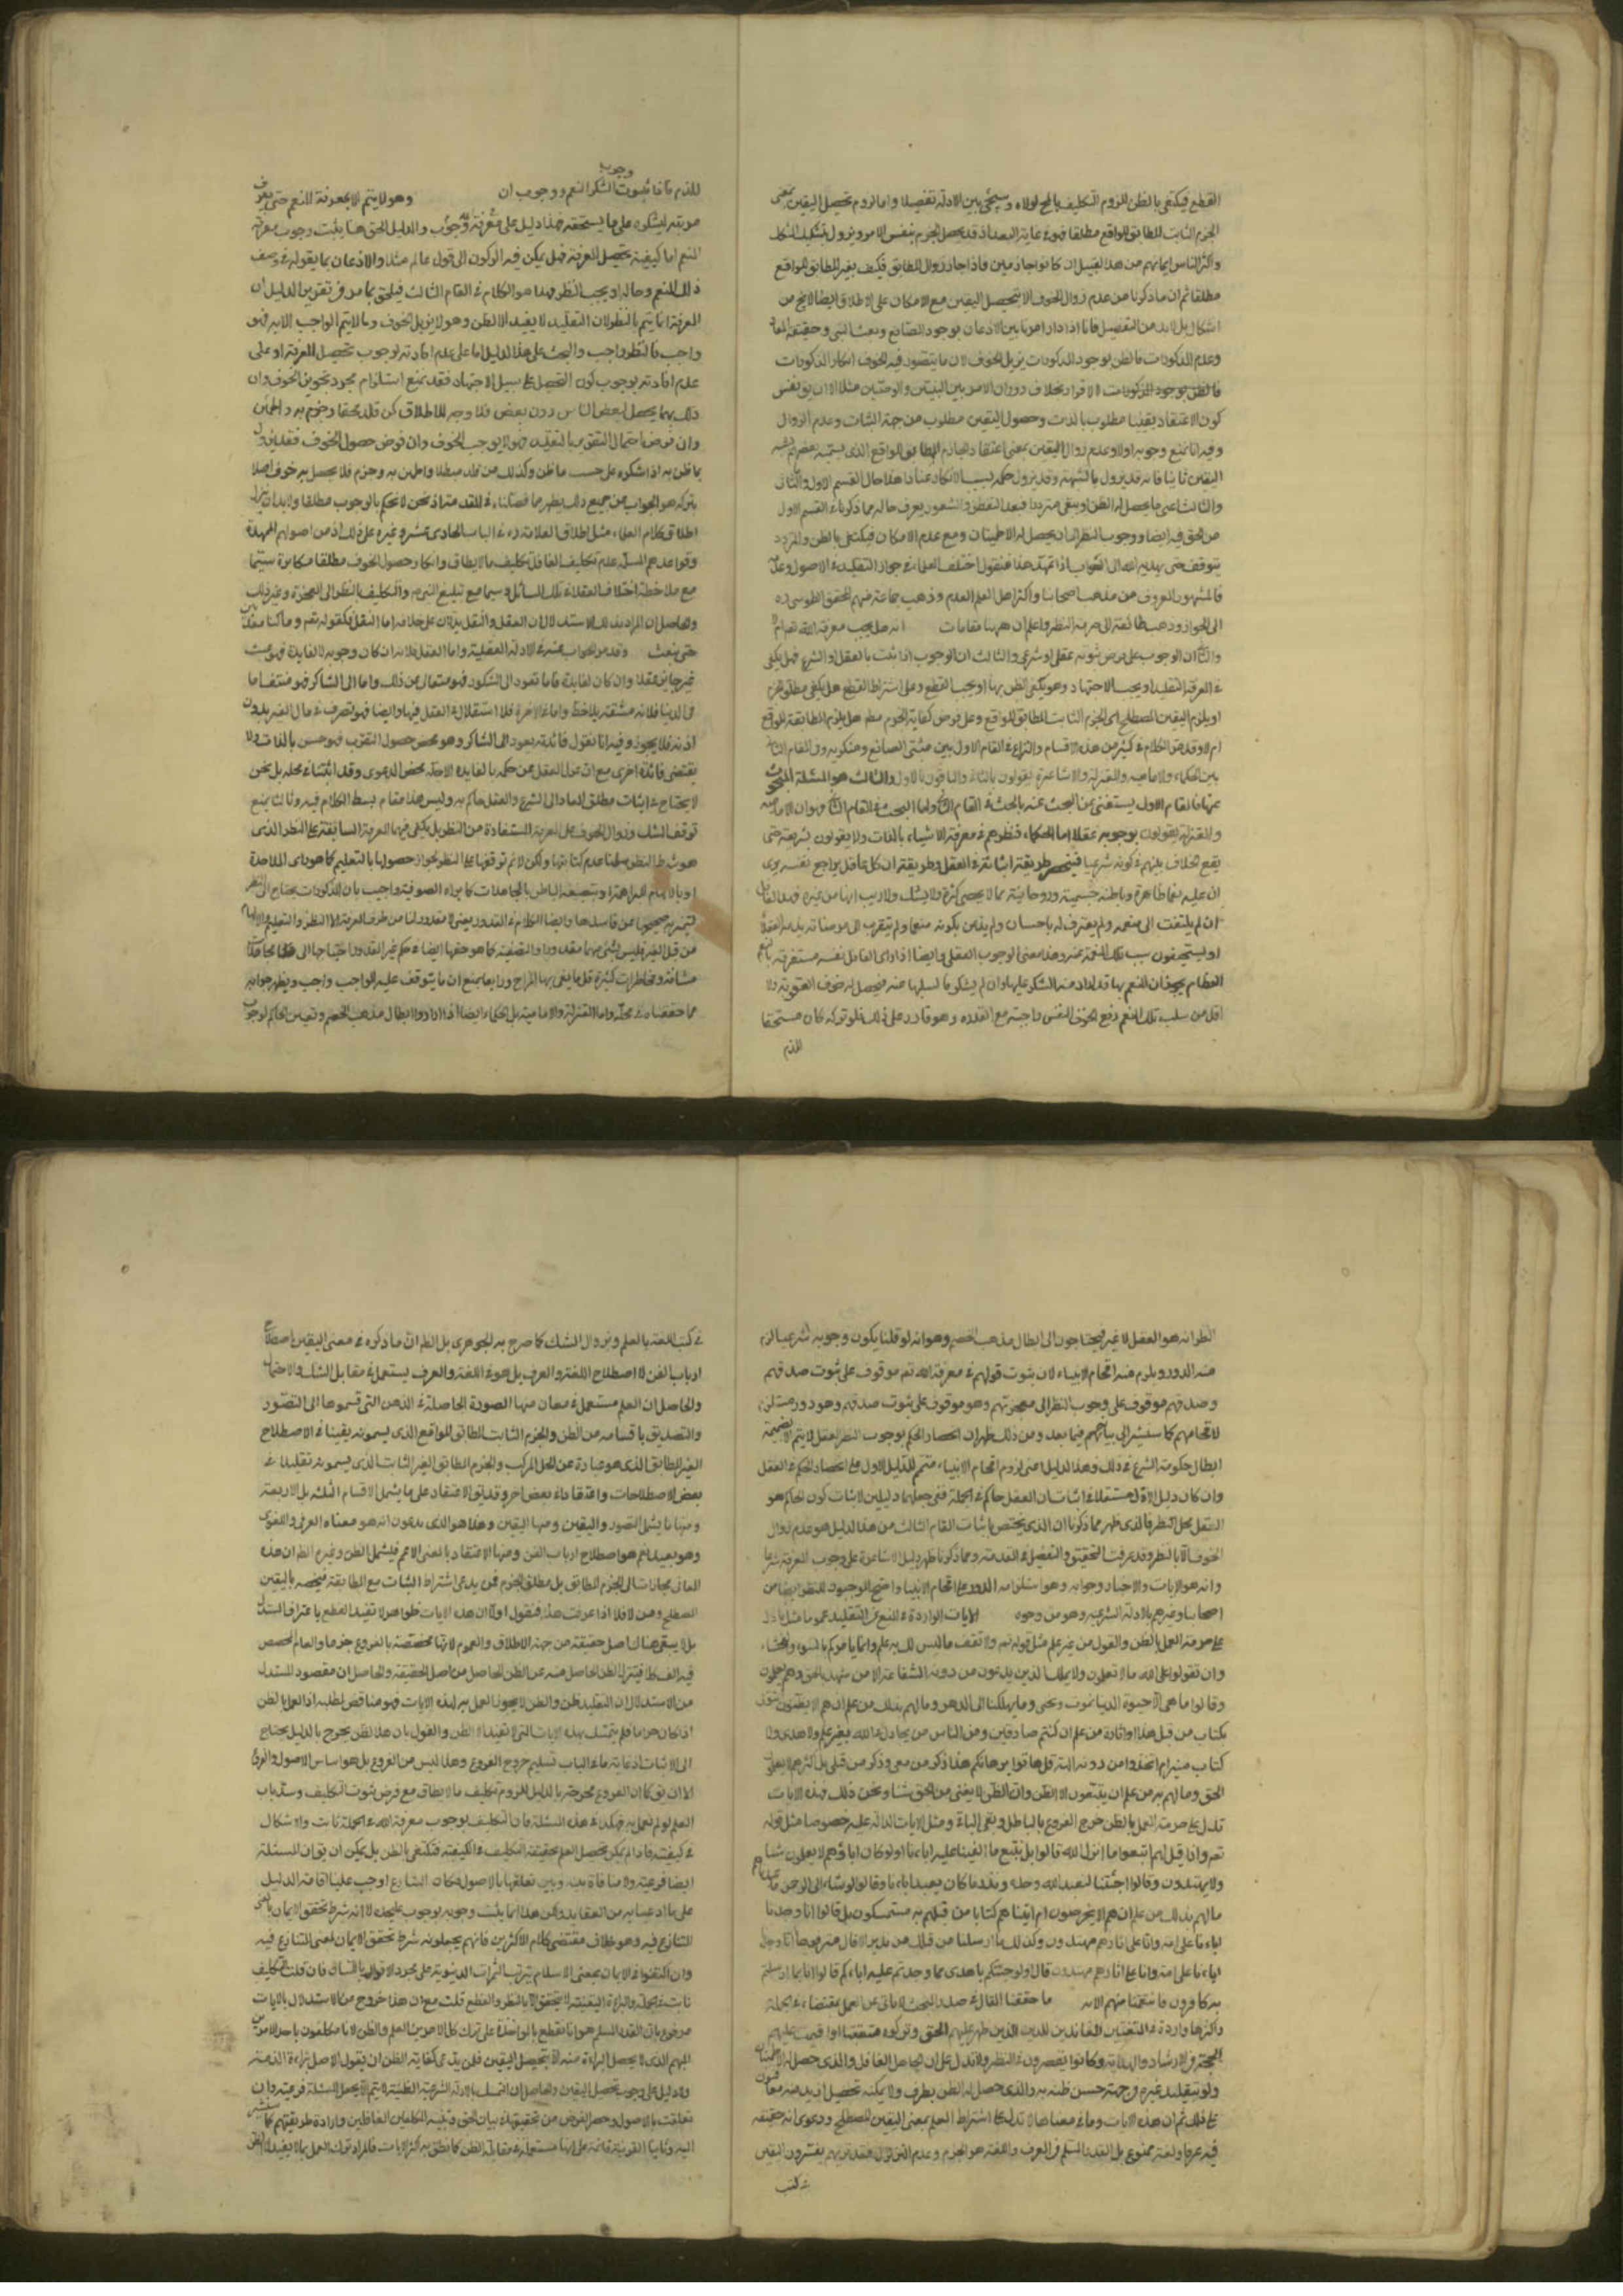 القطع فيكتفى بالظن للزوم التكليف بالمحال لولاه وسيجئ بين الادلة تفصيلا واما لزوم تحصيل اليقين بمعنى
الجزم الثابت المطابق للواقع مطلقا فهو في غاية البعد اذ قد يحصل الجزم بنفس الامر ويزول بتشكيك المشكك
واكثر الناس ايمانهم من هذا القبيل ان كانوا جازمين فاذا جاز زوال المطابق فكيف بغير المطابق للواقع
مطلقا ثم ان ما ذكرنا من عدم زوال الخوف الا بتحصيل اليقين مع الامكان على الاطلاق ايضا لا يخ من
اشكال بل لا بد من التفصيل فانا اذا دار امرنا بين الاذعان بوجود الصانع وبعث النبى وحقيقة المعاد
وعدم المذكورات فالظن بوجود المذكورات يزيل الخوف لان ما يتصور فيه الخوف انكار المذكورات
فالظن بوجود المذكورات لا الاقرار بخلاف دوران الامر بين النبيين والوصيين مثلا الا ان يق نفس
كون الاعتقاد يقينا مطلوب بالذات وحصول اليقين مطلوب من جهة الثبات وعدم الزوال
وفيه انا نمنع وجوبه اولا وعدم زوال اليقين بمعنى اعتقاد الجازم المطابق للواقع الذى يسميه بعضهم بشبه
اليقين ثانيا فانه قد يزول بالشبهة وقد يزول حكمه بسبب الانكار عنادا هذا حال القسم الاول والثانى
والثالث اعنى ما يحصل له الظن او يبقى مترددا فبعد التفطن والشعور يعرف حاله مما ذكرنا في القسم الاول
من الحق فيه ايضا ووجوب النظر الى ان يحصل له الاطمينان ومع عدم الامكان فيكتفى بالظن والمتردد
يتوقف حتى يهديه الله الى الصواب اذا تمهد هذا فنقول اختلف العلماء في جواز التقليد في الاصول وعدمه
فالمشهور المعروف من مذهب اصحابنا واكثر اهل العلم العدم وذهب جماعة منهم المحقق الطوسى ره
الى الجواز وذهب طائفة الى حرمة النظر واعلم ان ههنا مقامات انه هل يجب معرفة الله تع ام لا
والثانى ان الوجوب على فرض ثبوته عقلى او شرعى والثالث ان الوجوب اذا ثبت بالعقل او الشرع فهل يكفى
في المعرفة التقليد او يجب الاجتهاد وهو يكفى الظن بها او يجب القطع وعلى اشتراط القطع هل يكفى مطلق الجزم
او يلزم اليقين المصطلح اى الجزم الثابت المطابق للواقع وعلى فرض كفاية الجزم مطم هل يلزم المطابقة للواقع
ام لا وقد مر الكلام في كثير من هذه الاقسام والنزاع في المقام الاول بين مثبتى الصانع ومنكريه وفى المقام الثانى
بين الحكماء والامامية والمعتزلة والاشاعرة يقولون بالثانى والباقون بالاول والثالث هو المسئلة المبحوث
عنها فالمقام الاول يستغنى عن البحث عنه بالبحث في المقام الثانى واما البحث في المقام الثانى فهو ان الامامية
والمعتزلة يقولون بوجوبه عقلا اما الحكماء فنظرهم في معرفة الاشياء بالذات ولا يقولون بشريعة حتى
يقع الخلاف بينهم في كونه شرعيا فينحصر طريقة اثباته في العقل وطريقته ان كل عاقل يراجع نفسه يرى
ان عليه نعما ظاهرة وباطنة جسمية وروحانية مما لا يحصى كثرة ولا يشك ولا ريب انها من غيره فهذا العاقل
ان لم يلتفت الى منعمه ولم يعترف له باحسان ولم يذعن بكونه منعما ولم يتقرب الى مرضاته يذمه العقلاء
او يستحيقون سبب تلك النعمة عنه وهذا معنى الوجوب العقلى وايضا اذا راى العاقل نفسه مستغرقة بالنعم
العظام يجوز ان المنعم بها قد اراد منه الشكر عليها وان لم يشكرها لسلبها عنه فيحصل له خوف العقوبة ولا
اقل من سلب تلك النعم ودفع الخوف عن النفس واجب مع القدرة وهو قادر على ذلك فلو تركه كان مستحقا
للذم
للذم فاذا ثبوت وجوب الشكر للنعم ووجوب ان وهو لا يتم الا بمعرفة المنعم حتى يعرف
مرتبته ليشكره على ما يستحقه هذا دليل على معرفة الله وجوب والدليل الحق هنا يثبت وجوب معرفة
المنعم اما كيفية تحصيل المعرفة فهل يمكن فيه الركون الى قول عالم مثلا والاذعان بما يقوله في وصف
ذلك المنعم وحاله او يجب النظر فهذا هو الكلام في المقام الثالث فيلحق بما مر في تقرير الدليل ان
المعرفة انما يتم بالنظر لان التقليد لا يفيد الا الظن وهو لا يزيل الخوف وما لا يتم الواجب الا به فهو
واجب فالنظر واجب والبحث على هذا الدليل اما على عدم افادته لوجوب تحصيل المعرفة او على
عدم افادته لوجوب كون التحصيل على سبيل الاجتهاد فقد نمنع استلزام مجرد تجويز الخوف وان
ذلك ربما يحصل لبعض الناس دون بعض فلا وجه للاطلاق كمن قلد محقا وجزم به واطمئن
وان فرضنا احتمال التفوى بالتقليد فهو لا يوجب الخوف وان فرض حصول الخوف فقد يزول
بما ظن به اذا شكره على حسب ما ظن وكذلك من قلد مبطلا واطمئن به وجزم فلا يحصل به خوف اصلا
بتركه هو الجواب عن جميع ذلك يظهر مما فصلناه في المقدمة اذ نحن لا نحكم بالوجوب مطلقا ولا بد ان ينزل
اطلاق كلام العلماء مثل اطلاق العلامة ره في الباب الحادى عشر وغيره على ذلك اذ من اصولهم الممهدة
وقواعدهم المسلمة عدم تكليف الغافل وتكليف ما لا يطاق وانكار حصول الخوف مطلقا مكابرة سيما
مع ملاحظة اختلاف العقلاء في تلك المسائل ولا سيما مع تبليغ النبى ص والتكليف بالنظر الى المعجزة وغير ذلك
وحاصل ان المراد بذلك الاستدلال ان العقل والنقل يدلان على خلافه اما النقل فكقوله تعم وما كنا معذبين
حتى نبعث وقد مر الجواب عنه في الادلة العقلية واما العقل فلانه ان كان وجوبه لا لفايدة فهو عبث
غير جايز عقلا وان كان لفايدة فاما تعود الى الشكور فهو متعال عن ذلك واما الى الشاكر فهو منتف اما
في الدنيا فلانه مشقة بلا حظ واما في الاخرة فلا استقلال في العقل فيها وايضا فهو تصرف في مال الغير بدون
اذنه فلا يجوز وفيه انا نقول فائدته يعود الى الشاكر وهو محض حصول التقرب فهو حسن بالذات ولا
يقتضى فائدة اخرى مع ان عزل العقل عن حكمه بالفايدة الاخرة محض الدعوى وقد اثبتناه في محله بل نحن
لا نحتاج في اثبات مطلق المعاد الى الشرع والعقل حاكم به وليس هذا مقام بسط الكلام فيه وثالثا نمنع
توقف الشك وزوال الخوف على المعرفة المستفادة من النظر بل يكفى فيها المعرفة السابقة على النظر الذى
هو شرط النظر سلمنا عدم كفايتها ولكن لا نم توقفها على النظر لجواز حصولها بالتعليم كما هو راى الملاحدة
او بالالهام كما يراه البراهمة او بتصفية الباطن بالمجاهدات كما يراه الصوفية واجيب بان المذكورات يحتاج الى النظر
ليتميز به صحيحها من فاسدها وايضا الكلام في المقدور يعنى لا مقدور لنا من طرق المعرفة الا النظر والتعليم والالهام
من قبل الغير فليس شئ منهما مقدورا والتصفية كما هو حقها ايضا في حكم غير المقدور لاحتياجها الى مجاهدات
شاقة ومخاطرات كثيرة قل ما يفى بها المزاج ورابعا نمنع ان ما يتوقف عليه الواجب واجب ويظهر جوابه
مما حققناه في محله واما المعتزلة والامامية بل الحكماء ايضا اذا ارادوا ابطال مذهب الخصم وتعيين الحاكم لوجوب
النظر انه هو العقل لا غير فيحتاجون الى ابطال مذهب الخصم وهو انه لو قلنا بكون وجوبه شرعيا لزم
منه الدور ويلزم منه افحام الانبياء لان ثبوت قولهم في معرفة الله تعم موقوف على ثبوت صدقهم
وصدقهم موقوف على وجوب النظر الى معجزتهم وهو موقوف على ثبوت صدقهم وهو دور مستلزم
لافحامهم كما سنشير الى بيانهم فيما بعد ومن ذلك ظهر ان انحصار الحكم بوجوب النظر العقل لا يتم الا بضميمة
ابطال حكومة الشرع في ذلك وهذا الدليل اعنى لزوم افحام الانبياء متمم للدليل الاول على انحصار الحكم في العقل
وان كان دليل الاول مستقلا في اثبات ان العقل حاكم في الجملة ففى جعلهما دليلين لاثبات كون الحاكم هو
العقل محل النظر فالذى ظهر مما ذكرنا ان الذى يختص باثبات المقام الثالث من هذا الدليل هو عدم زوال
الخوف الا بالنظر وقد عرفت التحقيق والتفصيل في المقدمة ومما ذكرنا ظهر دليل الاشاعرة على وجوب المعرفة شرعا
وانه هو الايات والاخبار وجوابه وهو استلزامه الدور على افحام الانبيا واحتج الموجبون للنظر ايضا من
اصحابنا وغيرهم بالادلة الشرعية وهو من وجوه الايات الواردة في المنع عن التقليد عموما مثل ما دل
على حرمة العمل بالظن والقول من غير علم مثل قوله تعم ولا تقف ما ليس لك به علم وانما يامركم بالسوء والفحشاء
وان تقولوا على الله ما لا تعلمون ولا يملك الذين يدعون من دونه الشفاعة الا من شهد بالحق وهم يعلمون
وقالوا ما هى الا حيوتنا الدنيا نموت ونحيى وما يهلكنا الا الدهر وما لهم بذلك من علم ان هم الا يظنون ايتونى
بكتاب من قبل هذا او اثارة من علم ان كنتم صادقين ومن الناس من يجادل في الله بغير علم ولا هدى ولا
كتاب منير ام اتخذوا من دونه الهة قل هاتوا برهانكم هذا ذكر من معى وذكر من قبلى بل اكثرهم لا يعلمون
الحق وما لهم به من علم ان يتبعون الا الظن وان الظن لا يغنى من الحق شيئا ونحن ذلك فهذه الايات
تدل على حرمة العمل بالظن خرج الفروع بالباطل وبقى الباقى ومثل الايات الدالة عليه خصوصا مثل قوله
تعم واذا قيل لهم اتبعوا ما انزل الله قالوا بل نتبع ما الفينا عليه اباءنا اولو كان اباؤهم لا يعلمون شيئا
ولا يهتدون وقالوا اجئتنا لنعبد الله وحده ونذر ما كان يعبد اباءنا وقالوا لو شاء الرحمن ما عبدناهم
ما لهم بذلك من علم ان هم الا يخرصون ام اتيناهم كتابا من قبلهم به مستمسكون بل قالوا انا وجدنا
اباءنا على امة وانا على اثارهم مهتدون وكذلك ما ارسلنا من قبلك من نذير الا قال مترفوها انا وجدنا
اباءنا على امة وانا على اثارهم مهتدون قال اولو جئتكم باهدى مما وجدتم عليه اباءكم قالوا انا بما ارسلتم
به كافرون فانتقمنا منهم الاية ما حققنا القال في صدر المبحث لا ياتى عن العمل بمقتضاه في الجملة
واكثرها واردة في المتعنتين المعاندين للدين الذين ظهر عليهم الحق وتركوه متعنتا او اقيمت عليهم
الحجة والارشاد والهداية وكانوا يقصرون في النظر ولا تدل على ان الجاهل الغافل والذى حصل له الاطمينان
ولو بتقليد غيره وجهة حسن ظنه به والذى حصل له الظن بطرف ولا يمكنه تحصيل ازيد منه معاقبون
على ذلك ثم ان هذه الايات وما في معناها لا تدل على اشتراط العلم بمعنى اليقين المصطلح ودعوى انه حقيقة
فيه عرفا ولغة ممنوع بل القدر المسلم في العرف واللغة هو الجزم وعدم التزلزل فقد تريهم يفسرون اليقين
في كتب
في كتب اللغة بالعلم وبزوال الشك كما صرح به الجوهرى بل الظم ان ما ذكروه في معنى اليقين اصطلاح
ارباب الفن لا اصطلاح اللغة والعرف بل هو في اللغة والعرف يستعمل في مقابل الشك والاحتمال
والحاصل ان العلم مستعمل في معان منها الصورة الحاصلة في الذهن التى قسموها الى التصور
والتصديق باقسامه من الظن والجزم الثابت المطابق للواقع الذى يسمونه يقينا في الاصطلاح
الغير المطابق الذى هو عبارة عن الجهل المركب والجزم المطابق الغير الثابت الذى يسمونه تقليدا في
بعض الاصطلاحات واعتقادا في بعض اخر وقد يق الاعتقاد على ما يشمل الاقسام الثلثة بل الاربعة
ومنها ما يشمل التصور واليقين ومنها اليقين وهذا هو الذى يدعون انه هو معناه العرفى واللغوى
وهو بعيد بل هو اصطلاح ارباب الفن ومنها الاعتقاد بالمعنى الاعم فيشمل الظن وغيره الظم ان هذه
المعانى مجازات الى الجزم المطابق بل مطلق الجزم فمن يدعى اشتراط الثبات مع الطابقة فيخصه باليقين
المصطلح ومن لا فلا اذا عرفت هذا فنقول اولا ان هذه الايات ظواهر لا تفيد القطع باعتراف المستدل
بل لا يبقى هنا اصل حقيقة من جهة الاطلاق والعموم لانها مخصصة بالفروع جزما والعام المخصص
فيه الف كلا فيتنزل الظن الحاصل منه عن الظن الحاصل من اصل الحقيقة والحاصل ان مقصود المستدل
من الاستدلال ان التقليد ظن والظن لا يجوز العمل به لهذه الايات فهو مناقض لمطلبه اذ العمل بالظن
اذا كان حراما فلم يتمسك بهذه الايات التى لا تفيد الا الظن والقول بان هذا ظن مخرج بالدليل يحتاج
الى الاثبات اذ غاية ما في الباب تسليم خروج الفروع وهذا ليس من الفروع بل هو اساس الاصول والفروع
الا ان يق كما ان الفروع مخرجة بالدليل للزوم تكليف ما لا يطاق مع فرض ثبوت التكليف وسد باب
العلم لو لم نعمل به فكذا في هذه المسئلة فان التكليف بوجوب معرفة الله في الجملة ثابت والاشكال
في كيفيته فاذا لم يمكن تحصيل العلم بحقيقة التكليف في الكيفية فنكتفى بالظن بل يمكن ان يق ان المسئلة
ايضا فرعية ولا منافاة بينه وبين تعلقها بالاصول فكان الشارع اوجب علينا اقامة الدليل
على ما اذعنا به من العقايد ولكن هذا انما يثبت وجوبه لوجوب على حدة لا انه شرط تحقق الايمان بالمعنى
المتنازع فيه وهو خلاف مقتضى كلام الاكثرين فانهم يجعلونه شرط تحقق الايمان بالمعنى المتنازع فيه
وان اكتفوا في الايمان بمعنى الاسلام بترتب الثمرات الدنيوية على مجرد الاقرار باللسان فان قلت التكليف
ثابت في الجملة والبراءة اليقينية لا يتحقق الا بالنظر والقطع قلت مع ان هذا خروج من الاستدلال بالايات
مدفوع بان القدر المسلم هو انا نقطع بالمؤاخذة على ترك كلا الامرين العلم والظن لانا مكلفون باحد الامرين
المبهم الذى لا يحصل البراءة منه الا بتحصيل اليقين فلمن يدعى كفاية الظن ان يقول الاصل براءة الذمة
ولا دليل على وجوب تحصيل اليقين والحاصل ان التمسك بالادلة الشرعية الظنية لا يتم الا بجعل المسئلة فرعية وان
تعلقت بالاصول وحصر الغرض من تحقيقه في بيان الحق وتنبيه المكلفين الغافلين وارادة طريقتهم كما سنشير
اليه وثانيا القرينة قائمة على انها مستعملة في مقابل الظن كما نطق به اكثر الايات فالمراد ترك العمل بما لا يفيد الا الظن